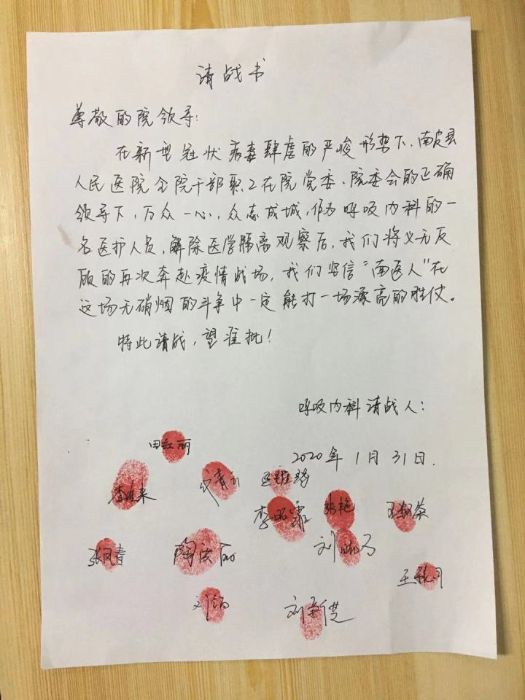 请战书
尊敬的院领导:
在新型冠状病毒肆虐的严峻形势下,南皮县
人民医院全院干部职工在院党委、院委会的正确
领导下,万众一心,众志成城,作为呼吸内科的一
名医护人员,解除医学隔离观察后,我们将义无反
顾的再次奔赴疫情战场,我们坚信“南医人”在
这场无硝烟的斗争中一定能打一场漂亮的胜仗。
特此请战,望准批!
呼吸内科请战人:
2020年1月31日.
田红丽
张艳
陶洪丽
刘新慧